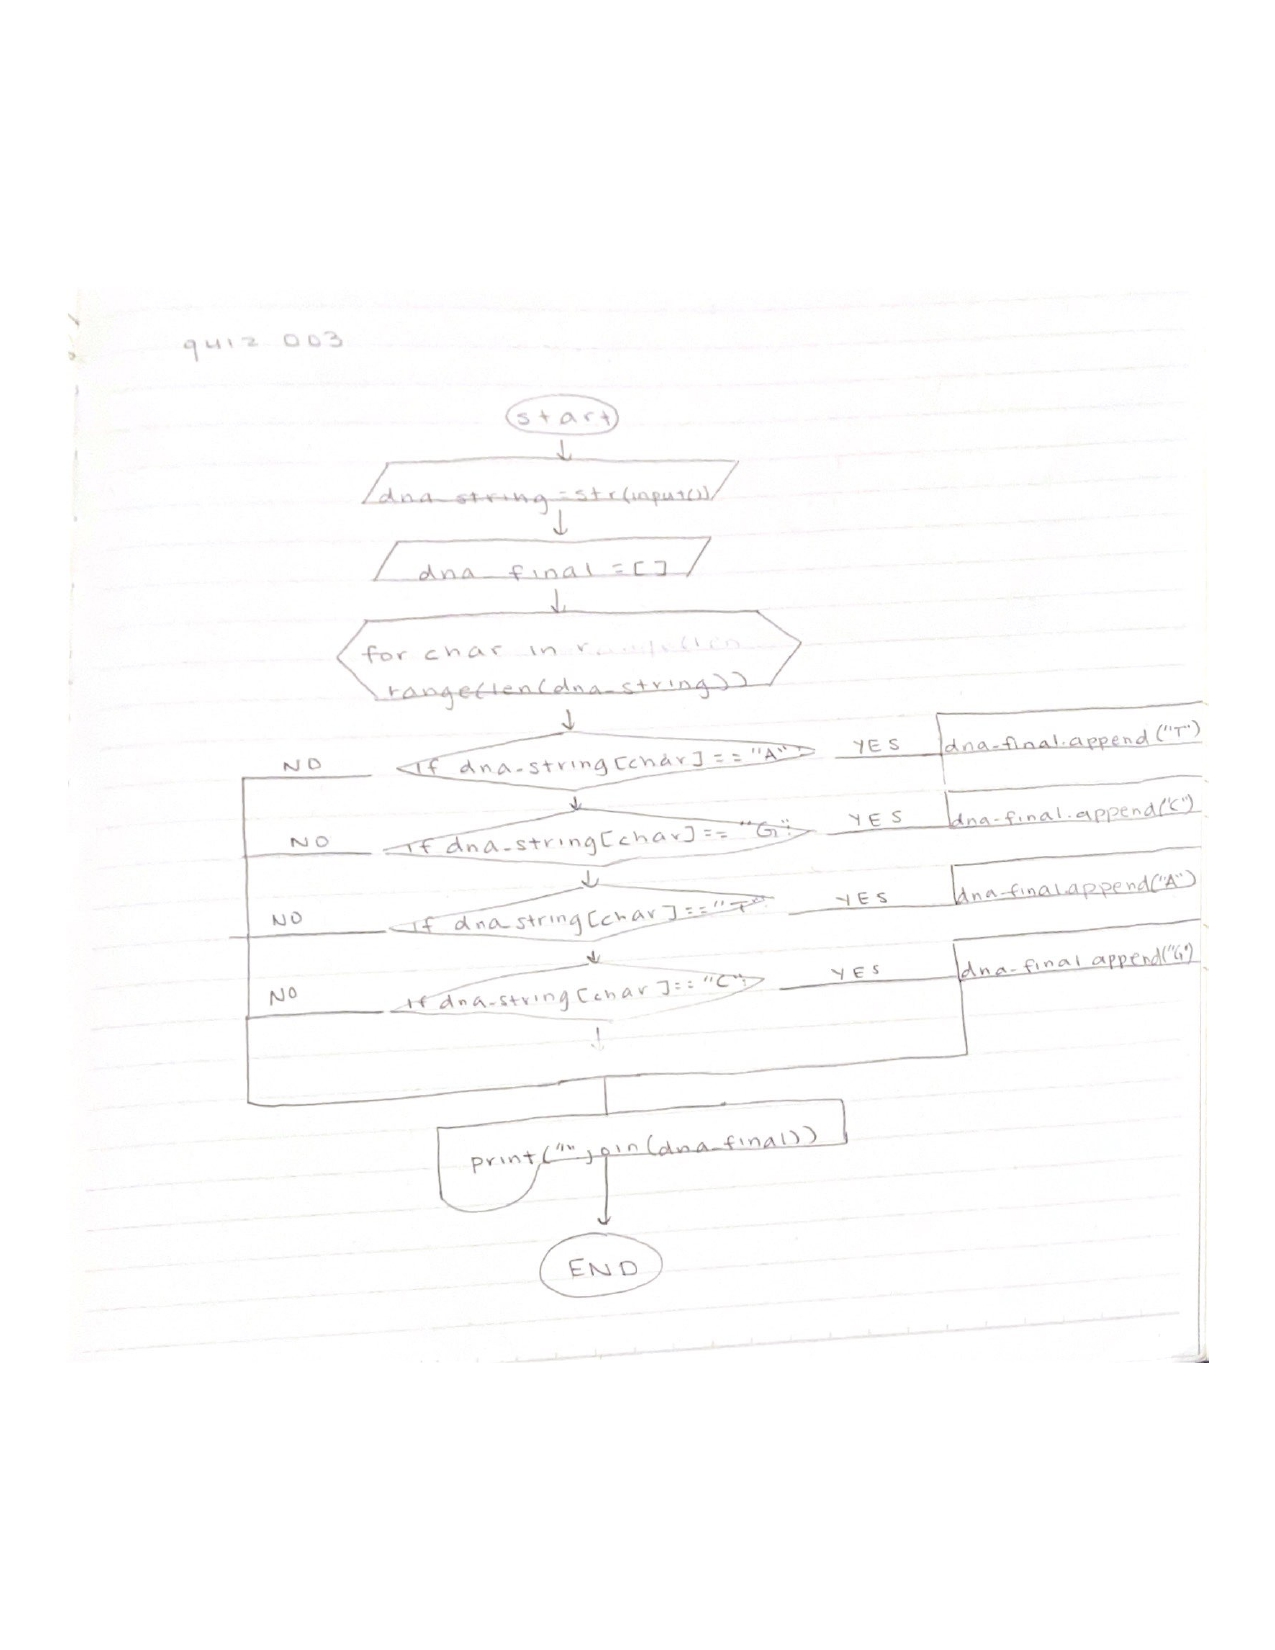 quiz 003
start
dna_string = str(input())
dna_final = []
for char in
range(len(dna_string))
If dna_string[char] == "A":
YES
dna_final.append("T")
NO
If dna_string[char] == "G":
YES
dna_final.append("C")
NO
If dna_string[char] == "T":
YES
dna_final.append("A")
NO
If dna_string[char] == "C":
YES
dna_final.append("G")
NO
print("".join(dna_final))
END